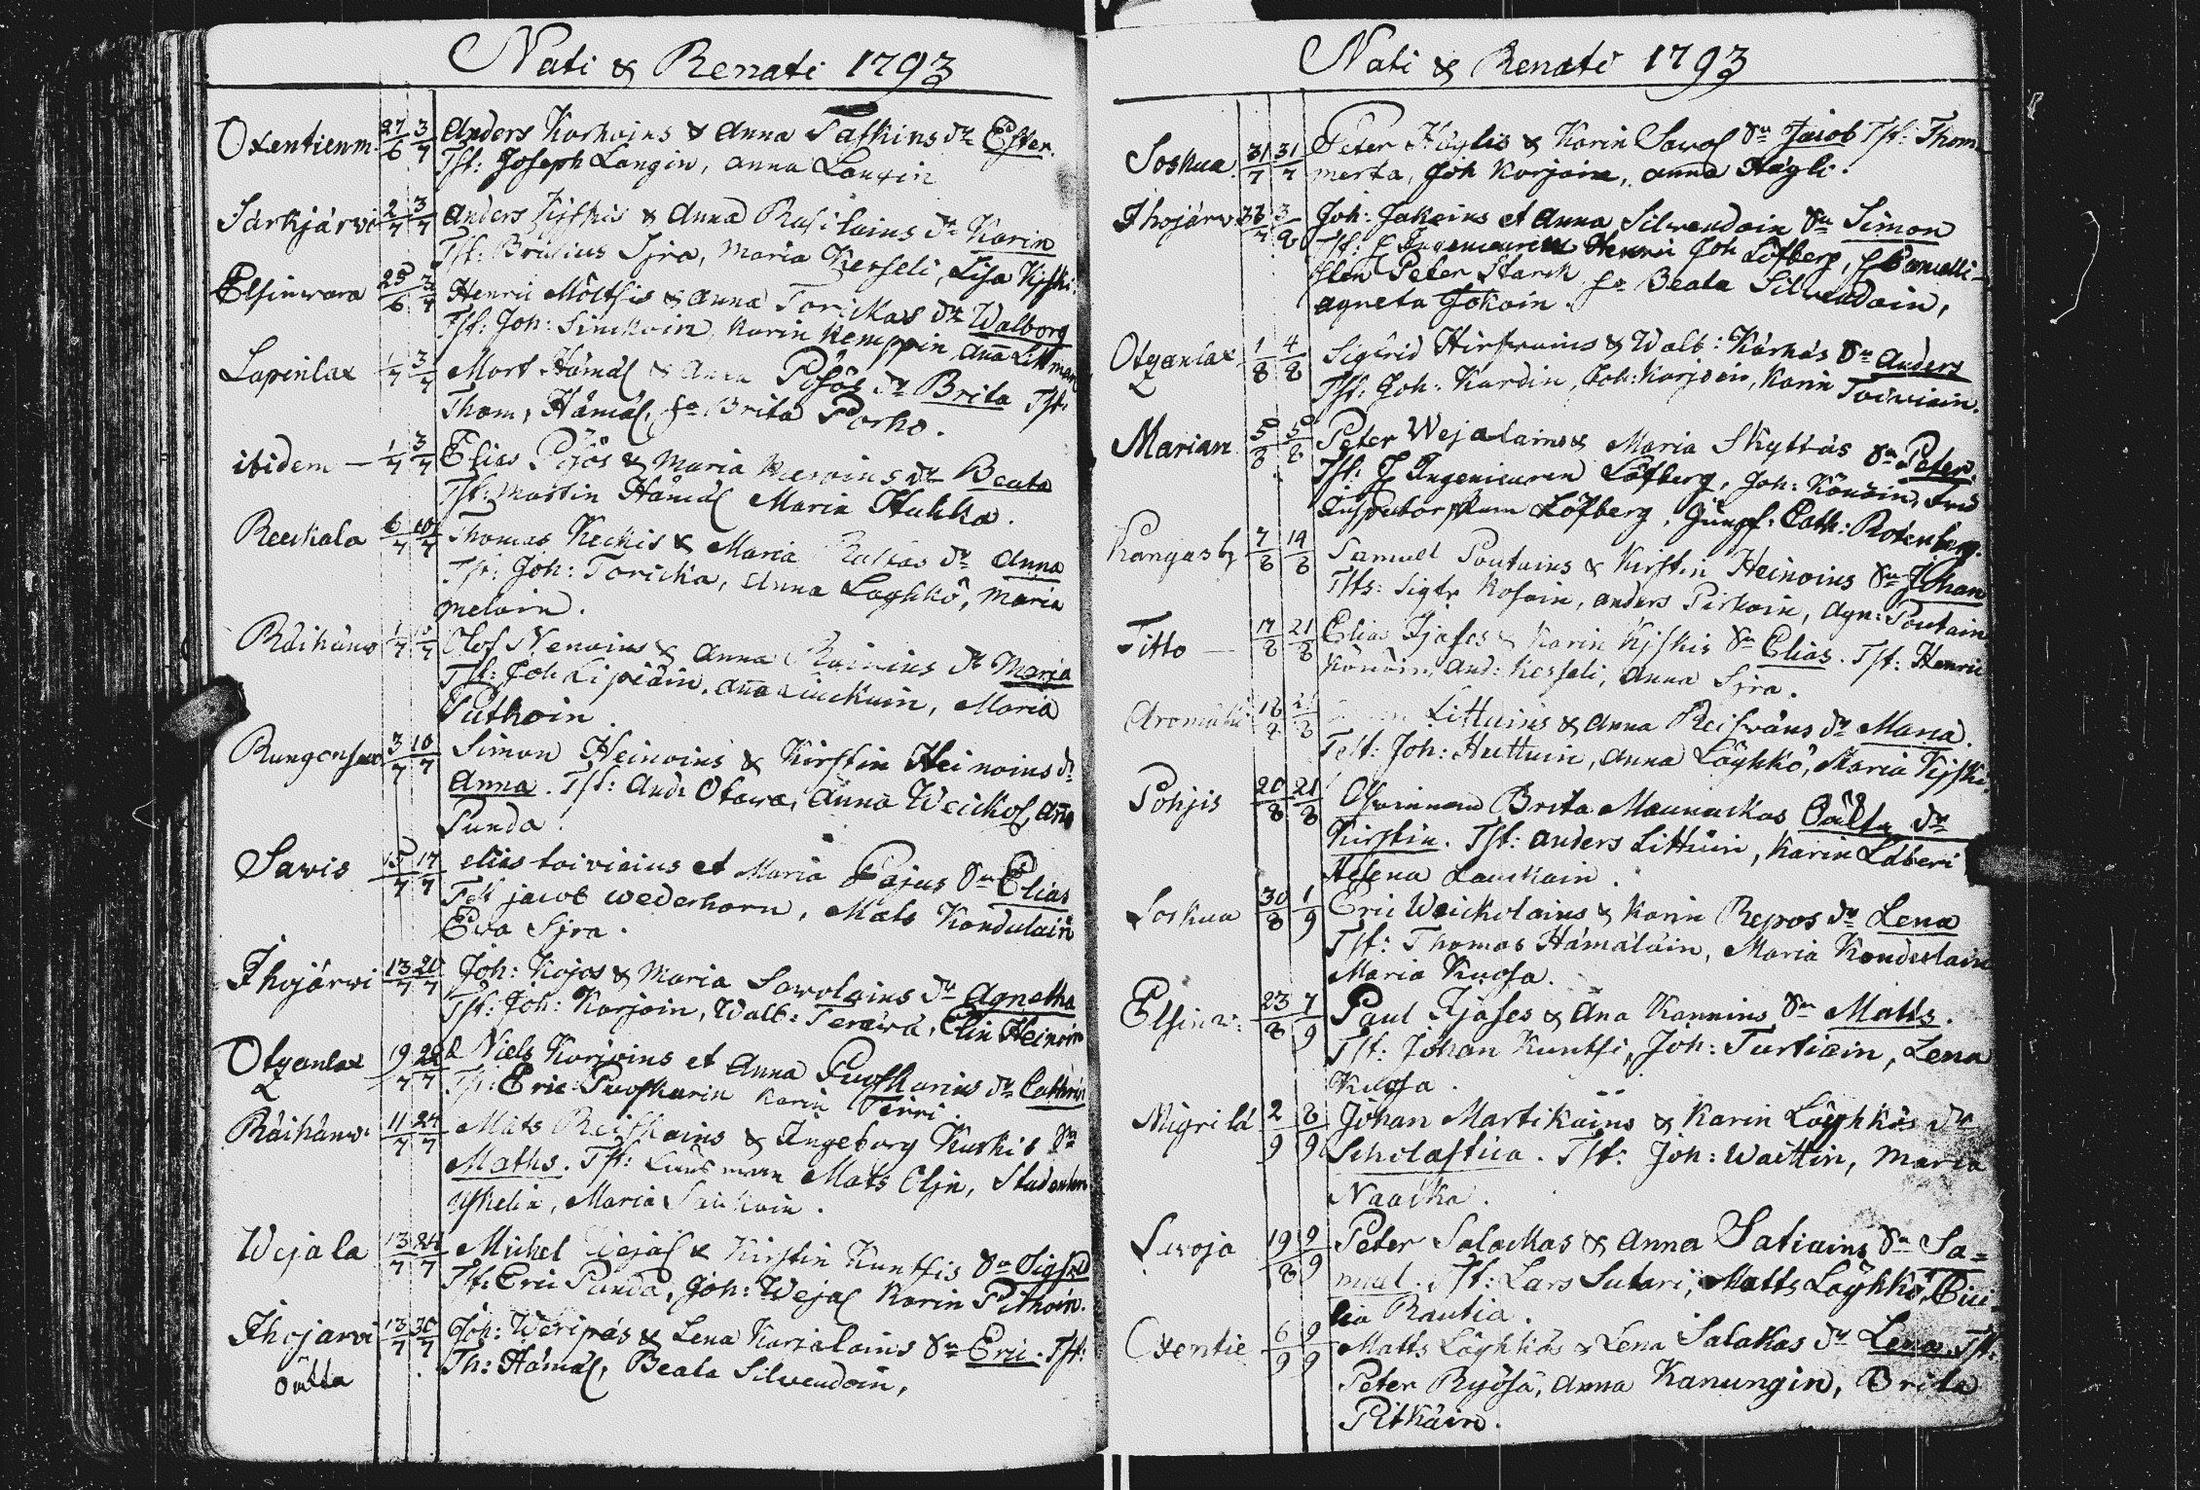 Nati & Renati 1793
Oxentienm. 27/6 3/7 Anders Karhoins & Anna Tasskins dr Ester.
Tst: Joseph Langin, Anna Lauxin
Särkjärvi 2/7 3/7 Anders Kijskis & Anna Rasilains dr Karin
Tst: Brusius Sjra, Maria Kesseli, Lisa Kijski.
Elsinwara 25/6 3/7 Henric Möltsis & Anna Torickas dr Walborg
Tst: Joh: Sinckoin, Karin Kemppin, Aña Littman
Lapinlax 1/7 3/7 Mart Hämäl & Anna Pösös dr Brita Tst:
Thom: Hämäl, fe Brita Porko.
ibidem — 1/7 3/7 Elias Pösös & Maria dr Beata
Tst: Martin Hämäl Maria Hukka.
Reeckala 6/7 10/7 Thomas Keckis & Maria Rastas dr Anna
Tst: Joh: Toricka, Anna Löyhkö, Maria
Meloin.
Räihänw 1/7 Olof Nenoins & Anna Rainins dr Maria
Tst: Joh Lipiäin, Aña Liuckuin, Maria
Puthoin.
3/7 10/7 Simon Heinoins & Kirstin Heinoins dr
Anna. Tst: And: Otawa, Anna Weickol, Añ
Punda.
Savis 15/7 17/7 elias toiviains et Maria Pajus Sn Elias
Test jacob wederhorn, Mats Kondulain
Eva Sjra.
Ihojärwi 13/7 20/7 Joh: Kojos & Maria Sawolains dr Agnetha
Tst: Joh: Karjoin, Walb: Terävä, Elin Heinoin
Otzanlax 19/7 Niels Karjoins et Anna Puosskarins dr Cathrin
L Tst: Eric Puosskarin Karin Pirri.
Räihänw: 11/7 24/7 Mats Reiskains & Ingeborg Kurkis Sn
Maths. Tst: Länsmann Mats Olin, Studenten
Yskelin, Maria
Wejala 13/7 24/7 Michel Wejal & Kirstin Kuntsis Sn Sigfrd
Tst: Eric Punda, Joh: Wejal Karin Pitkoin.
Ihojärvi 13/7 30/7 Joh: Weripäs & Lena Karjalains Sn Eric. Tst:
oälta Th: Hämäl, Beata Silvendoin,
Nati & Renati 1793
Soskua 31/7 31/7 Peter Häglis & Karin Savol Sn Jacob Tst: Thom
merta, Joh Karjoin, Anna Hägli.
Ihojärw 3/8 Joh: Jakoins et Anna Silvendoin Sn Simon
Tst: H Ingenieuren Henric Joh Löfberg, H Cancelli-
sten Peter Starck fe Beata Silvendoin,
Agneta Jokoin.
Otzanlax 1/8 4/8 Sigfrid Hirfwoins & Walb: Kärkäs Sn Anders
L Tst: Joh: Kardin, Joh: Karjoin, Karin Toiviain.
Marian 5/8 5/8 Peter Wejalains & Maria Skyttäs Sn Peter
Tst: H Ingenieuren Löfberg, Joh: Könöin, Fru
Inspectorskan Löfberg, Jungf: Cath: Rotenberg.
Kangasby 7/8 14/8 Samuel Poutains & Kirstin Heinoins Sn Johan
Tsts: Sigfr Kosoin, Anders Pirkoin, Agn: Poutain
Titto — 17/8 21/8 Elias Tjases & Karin Kijskis Sn Elias. Tst: Henric
Könöin, And: Kesseli, Anna Sjra.
Aromäki 18/8 21/8 Littuins & Anna Reifwäns dr Maria.
Test: Joh: Huttuin, Anna Löyhkö, Maria Kijski
Pohjis 20/8 21/8 Brita Maunuckas Oälta dr
Kirstin. Tst: Anders Littuin, Karin Laberi
Helena Lauckain.
Soskua 30/8 1/9 Eric Weickolains & Karin Repos dr Lena
Tst: Thomas Hämäläin, Maria Kondulain
Maria Kuosa.
Elsinw: 23/8 7/9 Paul Tjases & Ana Kannins Sn Matts.
Tst: Johan Kuntsi, Joh: Turtiain, Lena
Kuosa.
Migrilä 2/9 8/9 Johan Martikains & Karin Löyhkös dr
Scholastica. Tst: Joh: Waittin, Maria
Naacka.
Suroja 19/8 9/9 Peter Salackas & Anna Satiains Sn Sa=
muel. Tst: Lars Sutari, Matts Löyhkö, Ceci
lia Rautia.
Oxentie 6/9 9/9 Matts Löyhkös & Lena Salakas dr Lena Tst:
Peter Ryösä, Anna Kanungin, Brita
Pitkäin.